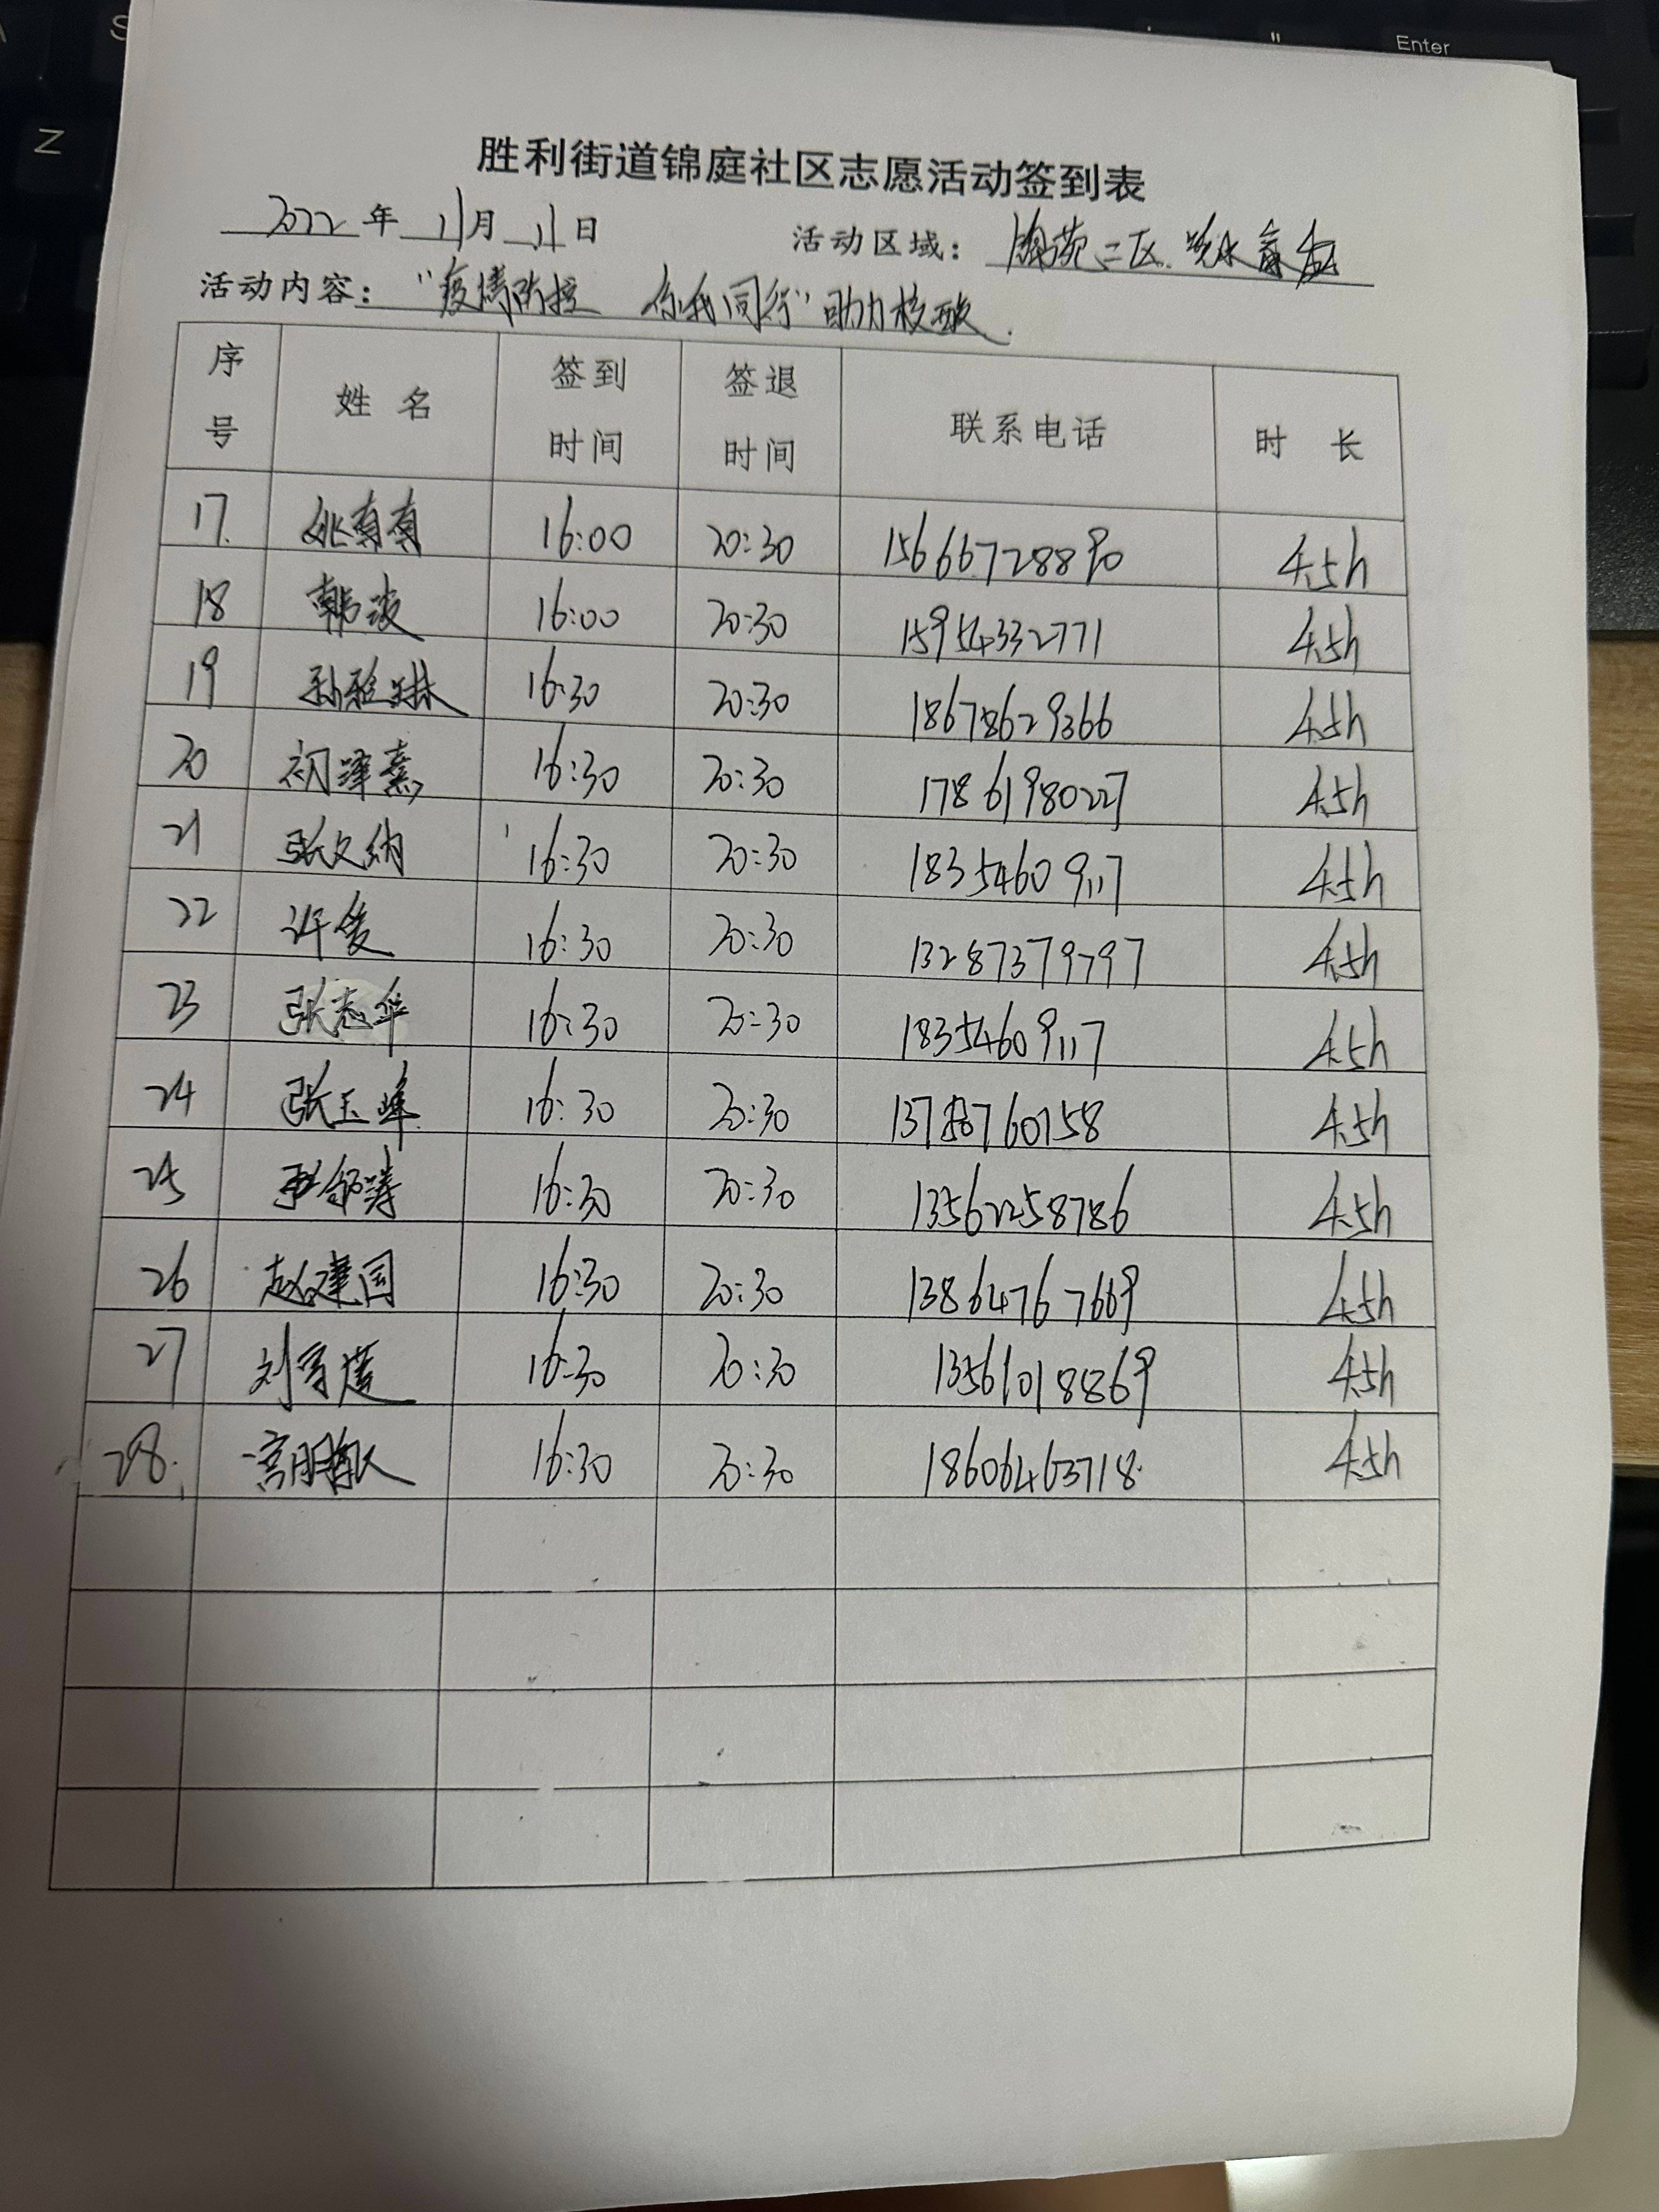 Enter
Z
胜利街道锦庭社区志愿活动签到表
2022年 11月 11日 活动区域: 苑二区.
活动内容: “疫情防控 你我同行”助力核酸.
序号 姓名 签到时间 签退时间 联系电话 时长
17. 姚有有 16:00 20:30 15666728890 4.5h
18 韩波 16:00 20:30 15954332771 4.5h
19 孙雅琳 16:30 20:30 18678629366 4.5h
20 初泽熹 16:30 20:30 17861980227 4.5h
21 张文纳 16:30 20:30 18354609117 4.5h
22 许俊 16:30 20:30 13287379797 4.5h
23 张志华 16:30 20:30 18354609117 4.5h
24 张玉峰 16:30 20:30 4.5h
25 16:30 20:30 13562258786 4.5h
26 赵建国 16:30 20:30 13864767669 4.5h
27 16:30 20:30 13561018869 4.5h
28. 16:30 20:30 18606463718. 4.5h